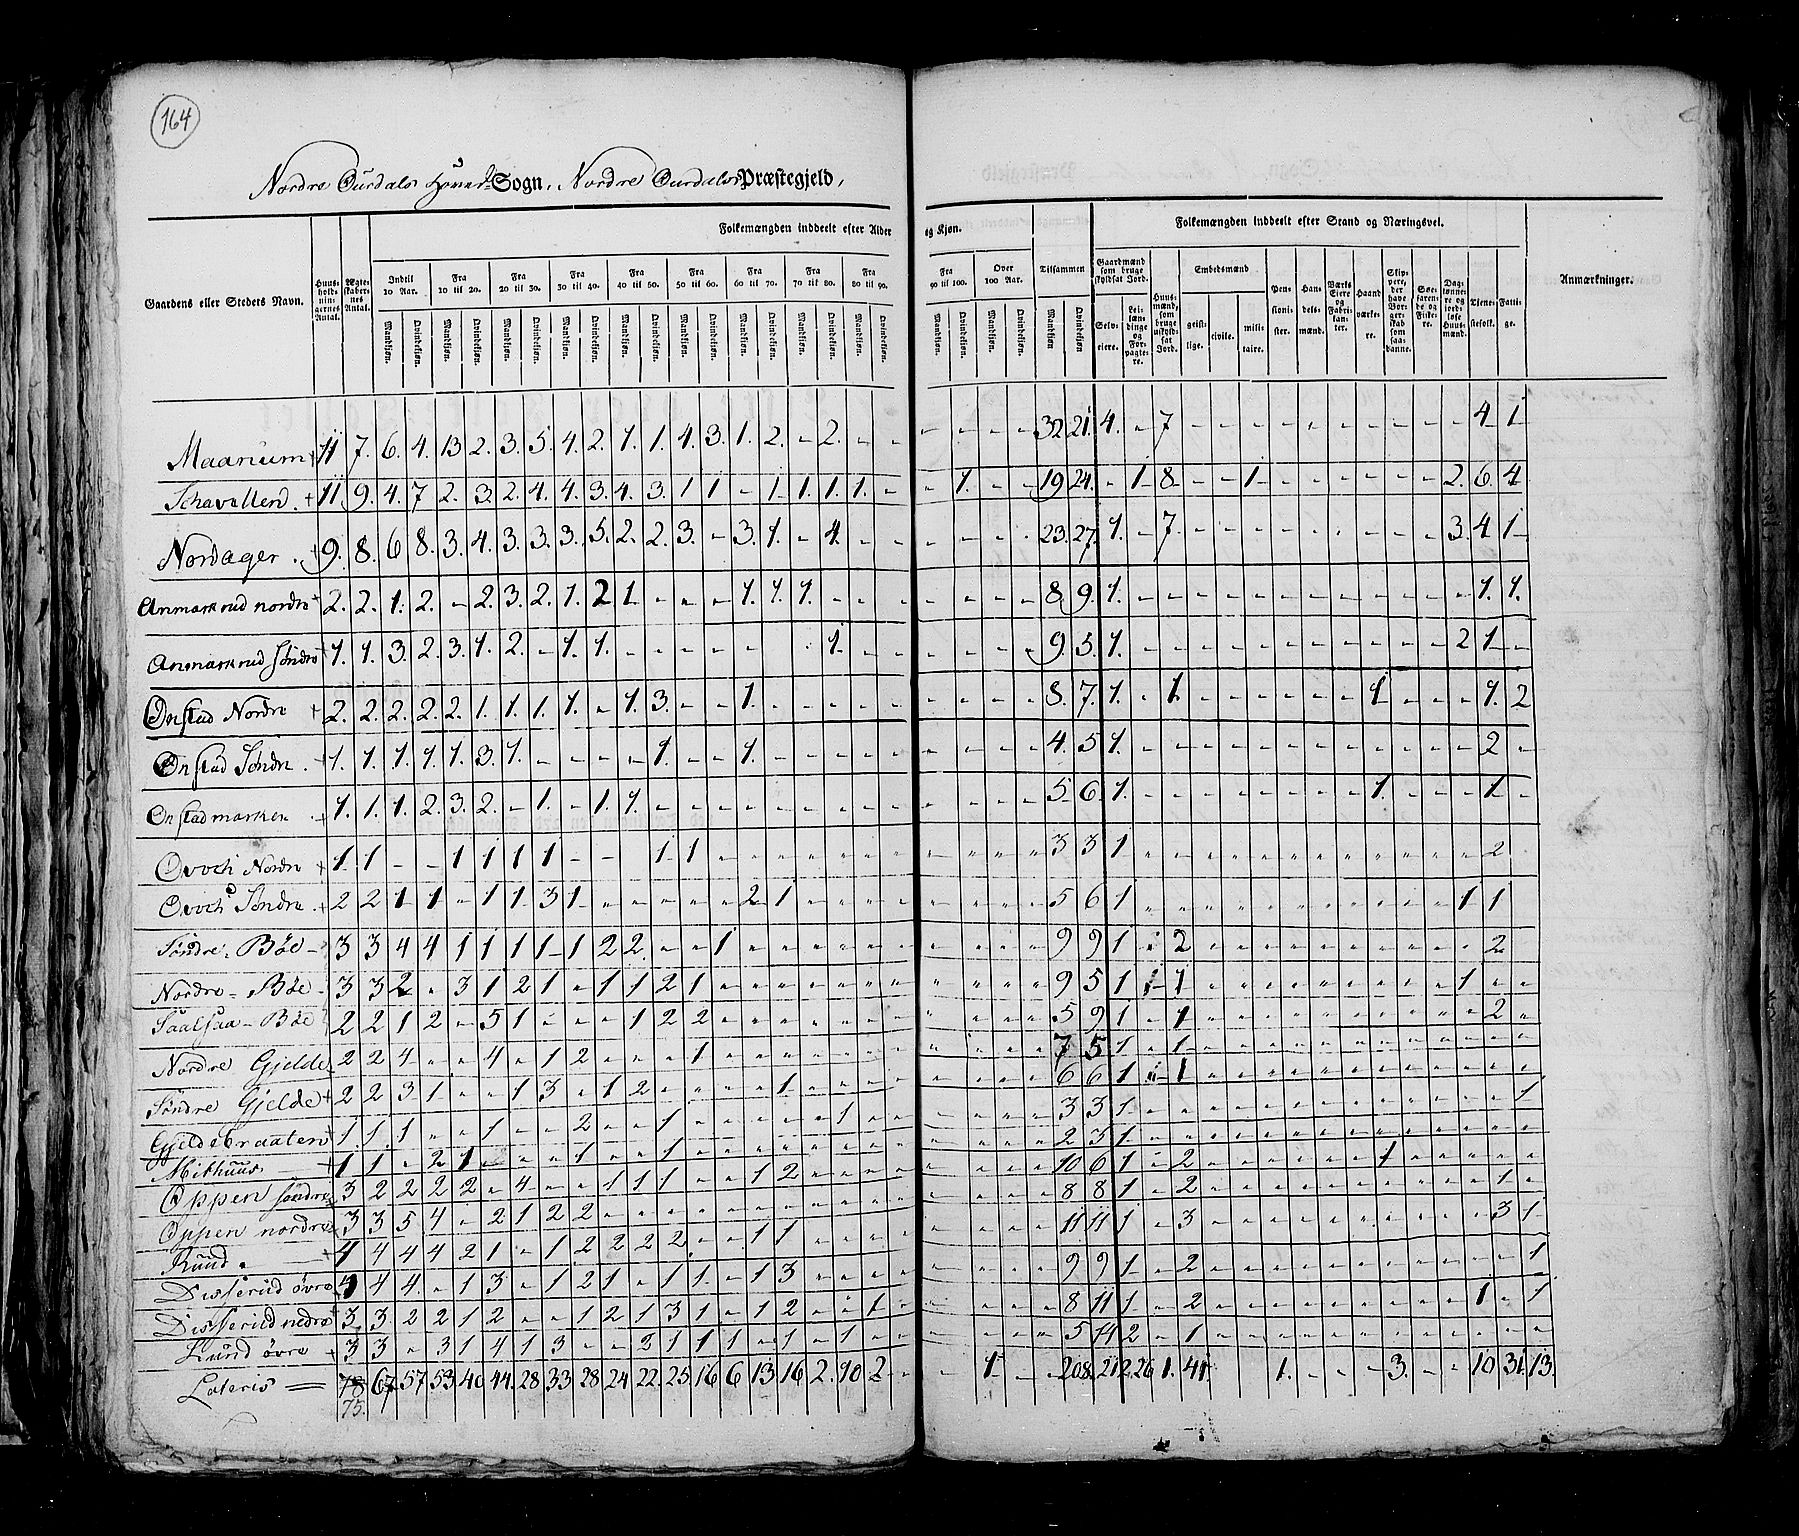 164
Nordre Ourdals Hoved-Sogn, Nordre Ourdals Præstegjeld,
Gaardens eller Stedets Navn. Huusholdningernes Antal. Ægteskabernes Antal. Folkemængden inddeelt efter Alder og Kjøn. Tilsammen Folkemængden inddeelt efter Stand og Næringsvei. Anmærkninger.
Indtil 10 Aar. Fra 10 til 20. Fra 20 til 30. Fra 30 til 40. Fra 40 til 50. Fra 50 til 60. Fra 60 til 70. Fra 70 til 80. Fra 80 til 90. Fra 90 til 100. Over 100 Aar.
Mandkjøn. Qvindekjøn.
Gaardmænd som bruge skyldsat Jord. Selveiere. Leilændinge og Forpagtere. Huusmænd, som bruge uskyldsat Jord. Embedsmænd geistlige. civile. militaire. Pensionister. Handelsmænd. Værks Eiere og Fabrikanter. Haandværkere. Skippere, der have Borgerskab som saadanne. Søefarende og Fiskere. Daglønnere og jordløse Huusmænd. Tjenestefolk. Fattige.
Maarium 11 7. 6. 4. 13 2. 3. 5. 4. 2. 1. 1. 4. 3. 1. 2. - 2. - - - - - - 32 21. 4. - 7 - - - - - - - - - - 4 1
Schavellend. 11. 9. 4. 7 2. 3. 2. 4. 4. 3. 4. 3. 1 1 - 1. 1. 1. 1. - - 1. - - 19 24. - 1 8 - - 1 - - - - - - 2. 6. 4
Nordager. 9. 8. 6 8. 3. 4. 3. 3. 3. 5. 2. 2. 3. - 3. 1. - 4. - - - - - - 23. 27. 1. - 7. - - - - - - - - - 3. 4 1
Anmarkrud nordre 2. 2. 1. 2. - 2. 3. 2. 1. 2 1. - - - 1. 1. 1. - - - - - - - 8 9. 1. - - - - - - - - - - - - 1. 1.
Anmarkrud Søndre 1. 1. 3. 2. 3. 1. 2. - 1. 1. - - - - - - - 1. - - - - - - 9. 5. 1. - - - - - - - - - - - 2 1. -
Onstad Nordre 2. 2. 2. 2. 2. 1. 1. 1. 1. - 1. 3. - - 1. - - - - - - - - - 8. 7. 1. - 1 - - - - - - 1 - - - 1. 2
Onstad Søndre. 1. 1. 1. 1. 1. 3. 1. - - - - 1. - - 1. - - - - - - - - - 4. 5 1. - - - - - - - - - - - - 2 -
Onstadmarken. 1. 1. 1. 2. 3. 2. - 1. - 1. 1. - - - - - - - - - - - - - 5. 6. 1. - - - - - - - - 1. - - - 1 -
Nordre 1. 1 - - 1 1 1 1 - - 1 1 - - - - - - - - - - - 3 3 1 - - - - - - - - - - - - 2
Søndre. 2 2 1 1 - 1 1 3 1 - - - - - 2 1 - - - - - - - - 5 6 1 - - - - - - - - - - - 1 1
Søndre Bøe 3 3 4 4 1 1 1 1 1 2 2 - - 1 - - - - - - - - - - 9 9 1 - 2 - - - - - - - - - - 2
Nordre Bøe 3 3 2 - 3 1 2 1 - 1 1 2 1 - - - - - - - - - - - 9 5 1 1 1 - - - - - - - - - 1 - -
Saalsaa-Bøe 2 2 1 2 - 5 1 - - - 1 2 2 - - - - - - - - - - - 5 9 1 - 1 - - - - - - - - - - 2 -
Nordre Gjelde 2 2 4 - - 4 - 1 2 - - - 1 - - - - - - - - - - - 7 5 1 - 1 - - - - - - - - - - - -
Søndre Gjelde 2 2 3 1 - - 1 3 - 1 2 - - - - 1 - - - - - - - - 6 6 1 - 1 - - - - - - - - - - - -
Gjeldebraaten 1. 1. 1 - - 1 - - 2 - - 1 - - - - - 1 - - - - - - 3 3 1 - - - - - - - - - - - - - 1
Mithuus 1 1 - 2 1 - - - 1 - - 1 - - - - - - - - - - - - 2 3 1 - - - - - - - - - - - - - -
Oppen søndre 3 2 2 2 2 - 4 - - 1 1 1 - - 1 2 - - - - - - - - 10 6 1 - 2 - - - - - - 1 - - - - -
Oppen nordre 3 3 5 4 - 2 1 2 2 - - - - - - - - - - - - - - - 8 8 1 - 2 - - - - - - - - - - 1 -
Ruud. 4 4 4 4 2 1 - 1 2 2 2 2 - - 1 1 - - - - - - - - 11 11 1 - 3 - - - - - - - - - - 3 1
Disserud øvre 4 4 4 - 1 3 - 1 2 1 - 1 1 - 1 3 - - - - - - - - 9 9 1 - 2 - - - - - - - - - - - 1
Disserud nedre 3 3 2 2 1 2 - - 1 2 1 3 1 - 1 2 - - 1 - - - - - 8 11 1 - 2 - - - - - - - - - - 1 - 1
Lund øvre 3 3 - 3 1 4 1 3 - - 2 1 1 1 - 1 - 1 - - - - - - 5 11 2 - 1 - - - - - - - - - - - -
Lateris 78 67. 57 53 40 44. 28 33 28 24 22. 25 16 6 13 16 2. 10 2 - - 1 - - 208. 212. 26 1. 41. 1. - - - 3. - - 10 31. 13.
75.